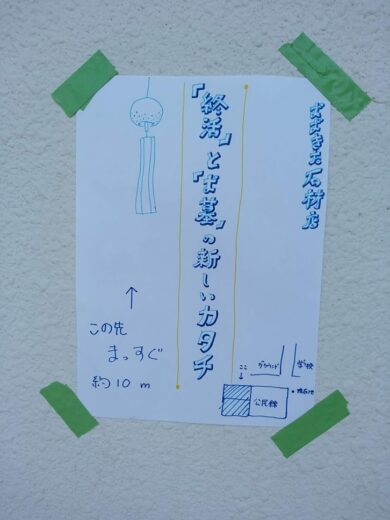 おおきた石材店
『終活』と『お墓』の新しいカタチ
↑
この先
まっすぐ
約10m
ここ
↓
グラウンド
学校
公民館
現在地